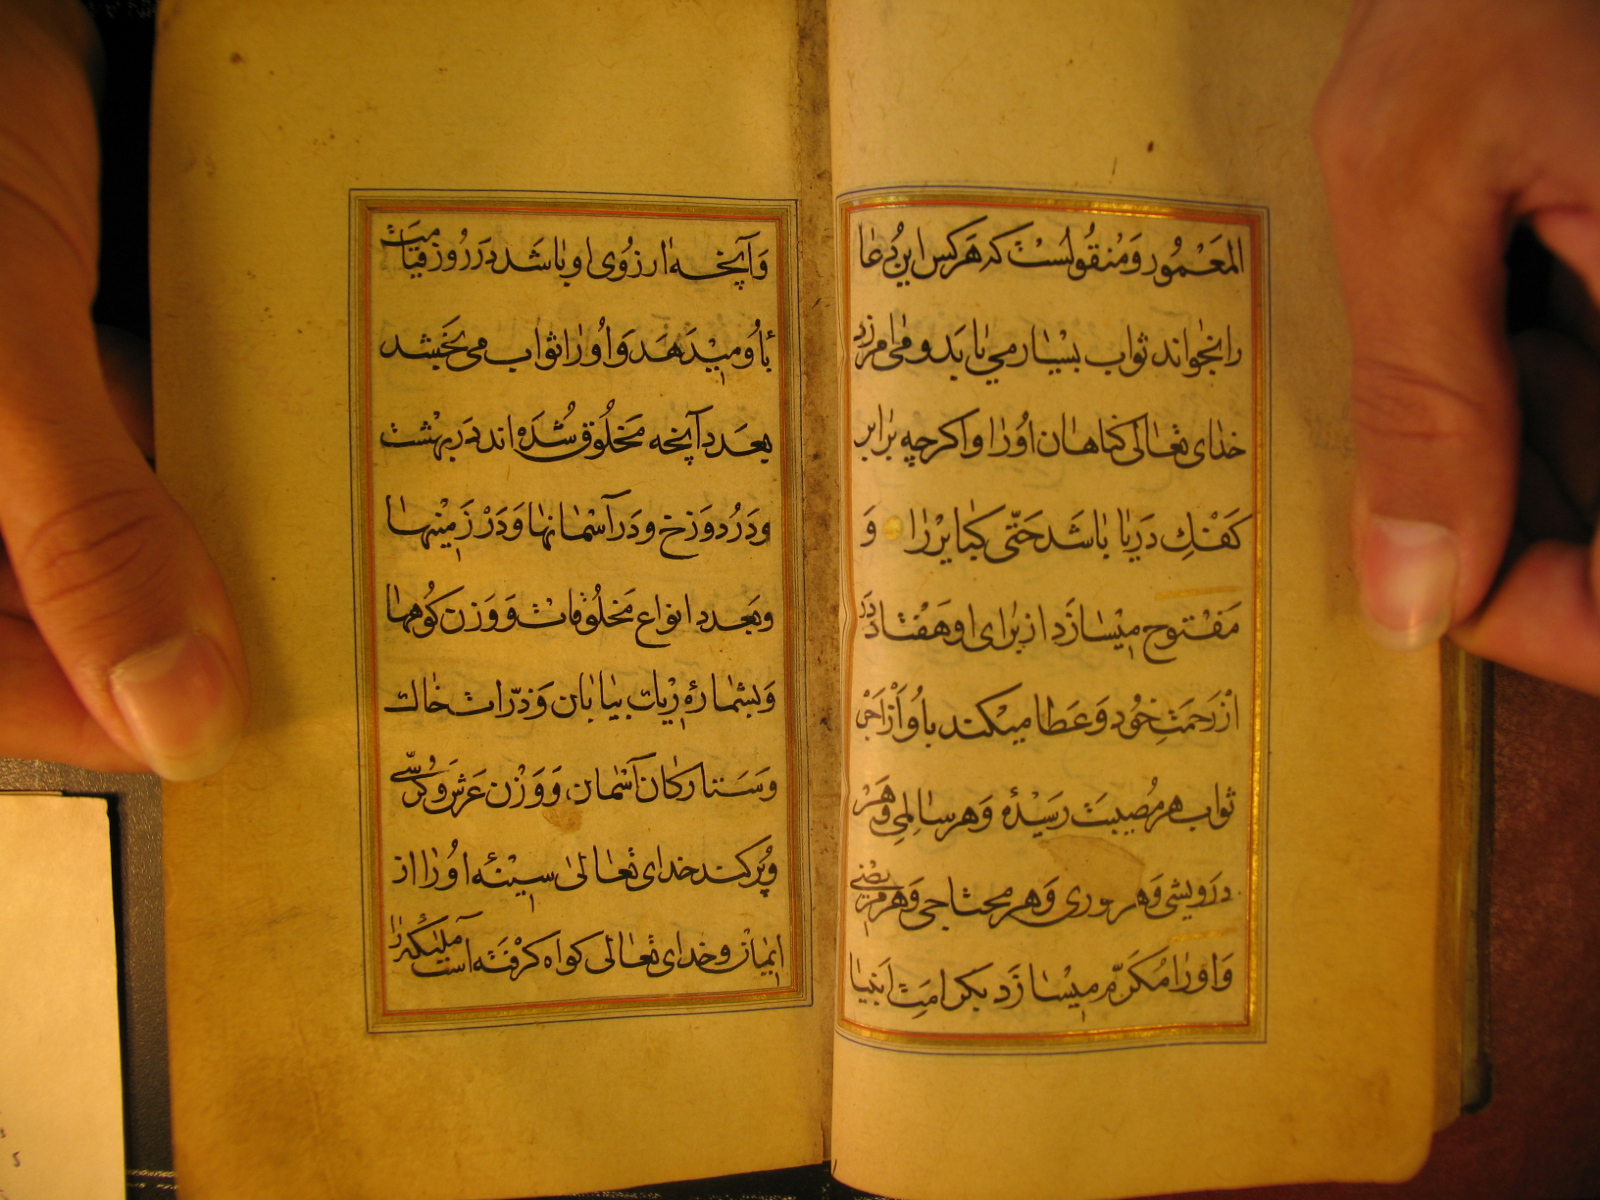 المَعْمُور وَمَنقُولَسْت که هرکس این دُعا
را بخواند ثواب بسیار می یابد و می امرزد
خدای تعالی کناهان اورا و اکرچه برابر
کَفَکِ دَریا باشد حَتّی کبایررا و
مَفْتوح میسازد از برای او هفتاد دَر
از رَحمَتِ خود وَ عَطا میکند باُو اَز اَجر
ثواب هر مُصیبت رسیدۀ وَ هر سالمی وَ هر
درویشی وَ هر وَ هر محتاجی وَ هر مریضی
وَ اورا مُکَرّم میسازد بکرامتِ انبیا
وَ آنچه ارزوی او باشد در روز قیامت
باُو میدهد وَ اُورا ثواب می بخشد
بعدد آنچه مَخلُوق شُدَه اند در بهشت
و در دوزخ و در آسمانها وَ دَر زَمینها
و بعدد انواع مَخلُوقات وَ وَزن کوهها
وَ بشمارۀ ریک بیابان وَ ذرّات خاک
وَ سَتارکان آسْمان وَ وَزْن عَرش وَ کُرسّی
وَ پُر کند خدای تعالی سینۀ اورا از
ایمان و خدای تعالی کواه کرفته است ملئکه را